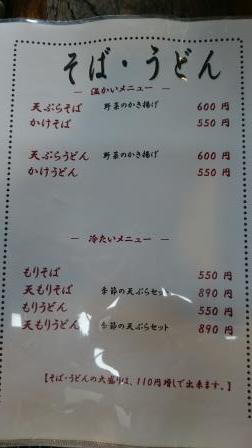 そば・うどん
― 温かいメニュー ―
天ぷらそば 野菜のかき揚げ 600 円
かけそば 550 円
天ぷらうどん 野菜のかき揚げ 600 円
かけうどん 550 円
― 冷たいメニュー ―
もりそば 550 円
天もりそば 季節の天ぷらセット 890 円
もりうどん 550 円
天もりうどん 季節の天ぷらセット 890 円
【そば・うどんの大盛りは、110円増しで出来ます。】